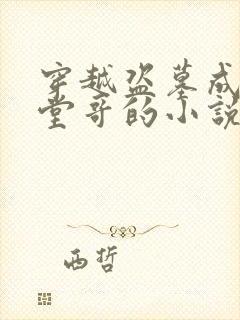 穿越盗墓成
堂哥的小说
西哲